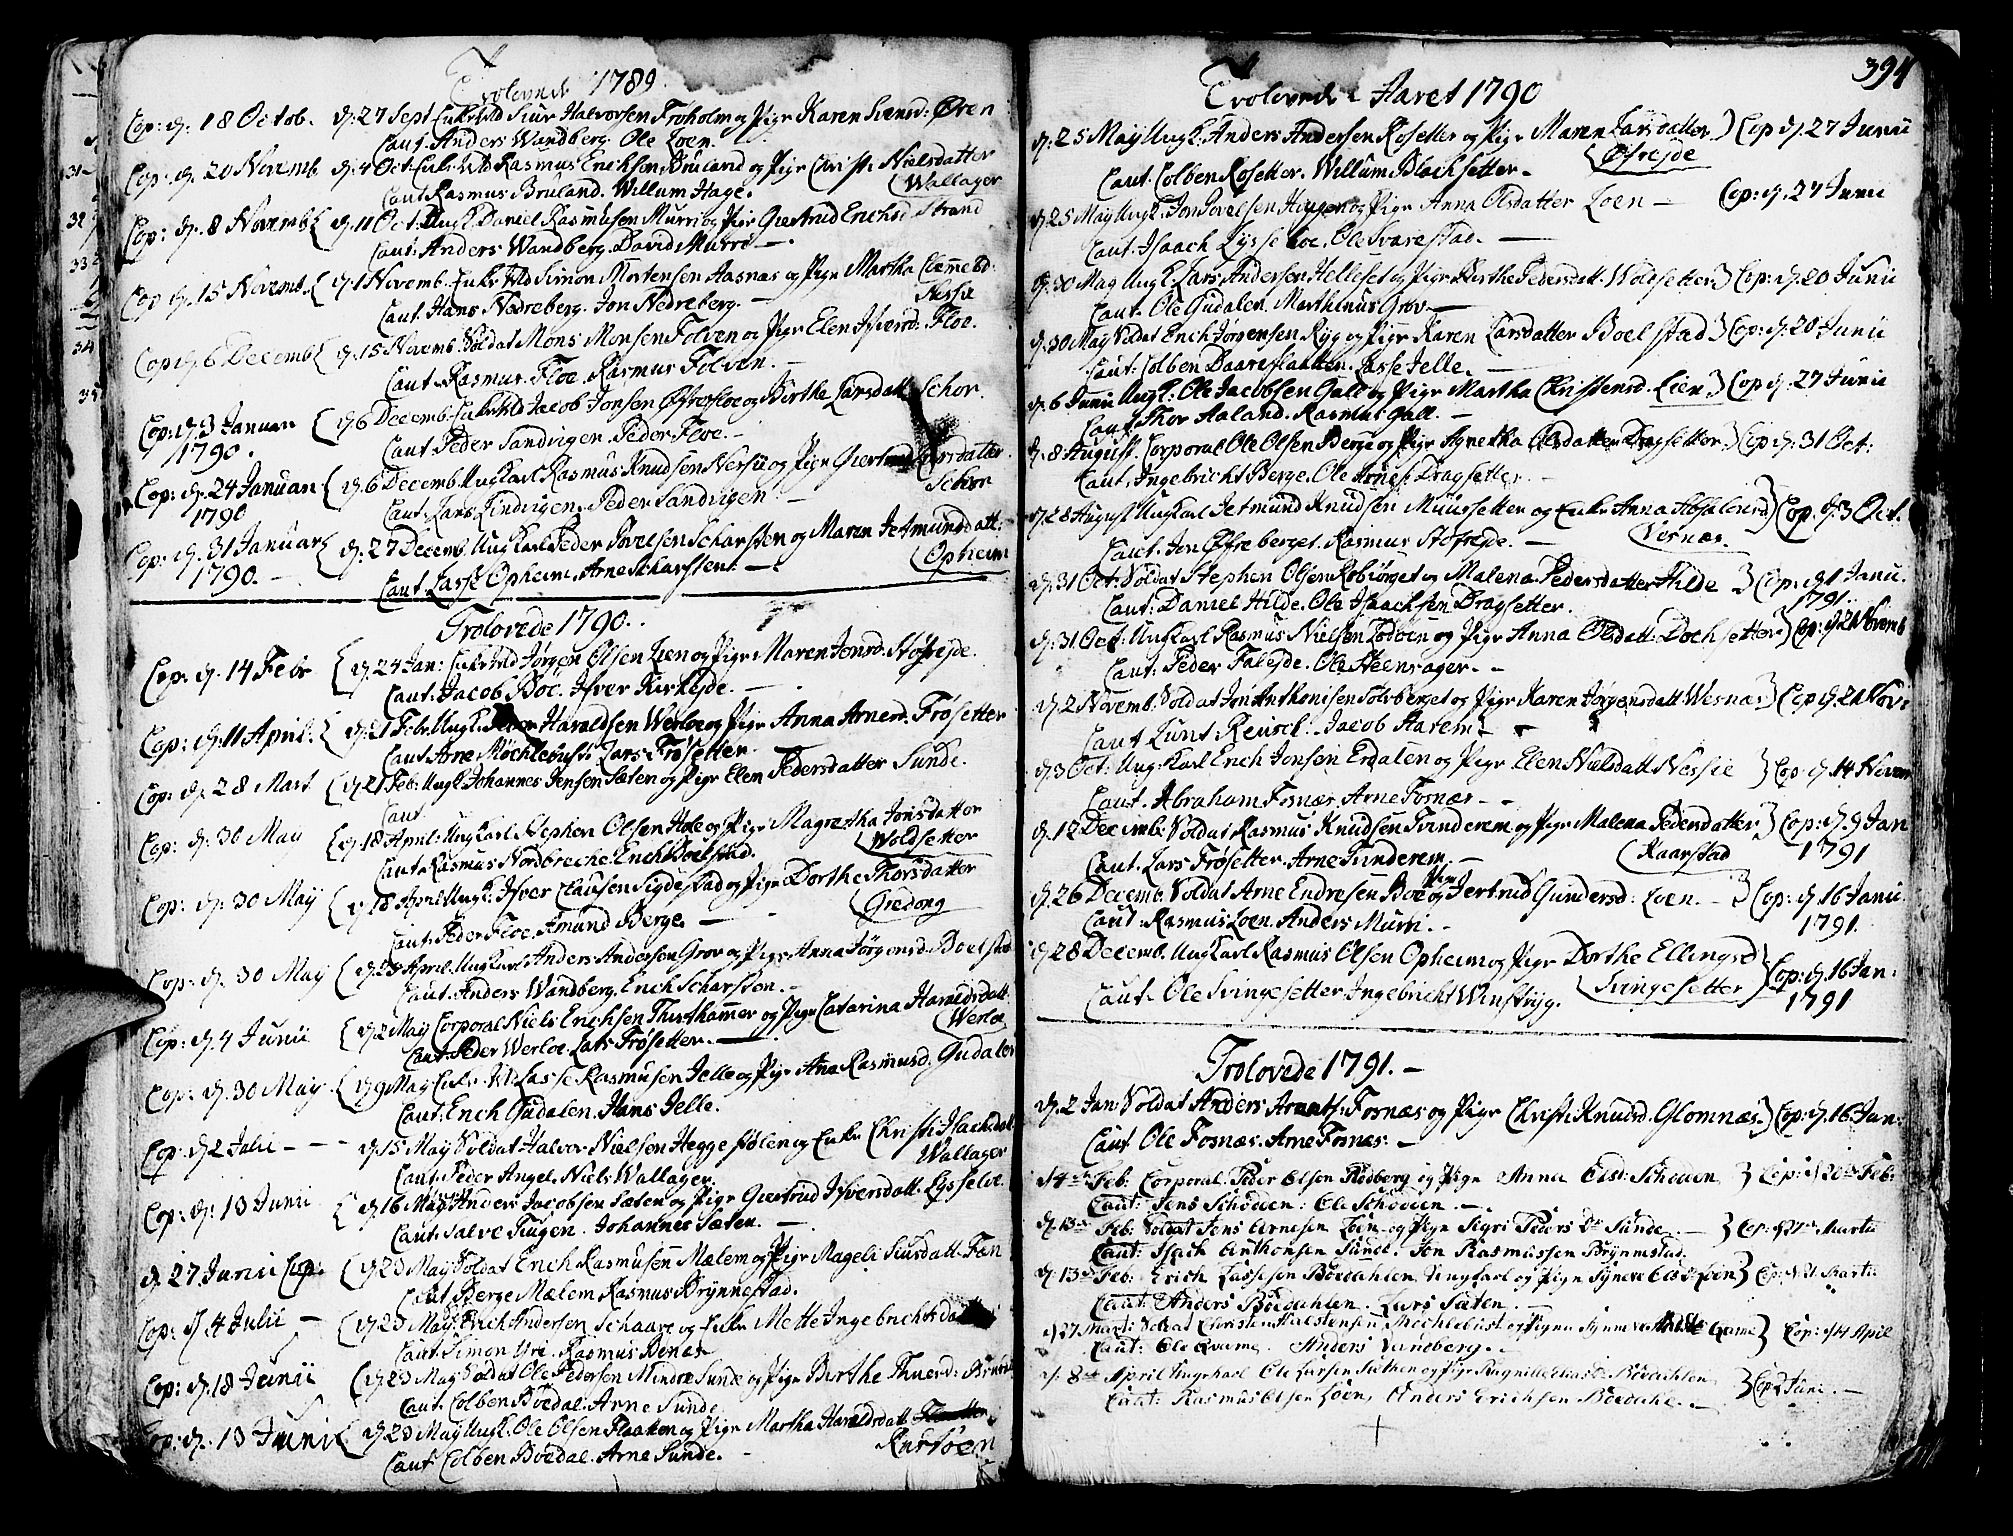 Trolovede 1789
Cop: d. 18 Octob. d: 27 Sept Enke Md Siur Halvorsen Froholm og Pige Karen Svensd. Øren
Caut. Anders Wandberg. Ole Loen.
Cop: d. 20 Novemb d: 4 Oct. Enke Md Rasmus Erichsen Bruland og Pige Christi Nielsdatter
Caut. Rasmus Bruland. Willum Hage. Wallager
Cop: d. 8 Novemb d. 11 Oct. Ungk. Daniel Rasmusen Murri og Pige Giertrud Erichsd. Strand
Caut. Anders Wandberg. David Murri
Cop d. 15 Novemb. d. 1 Novemb. Enke Md Simon Mortensen Aasnæs og Pige Martha Clemetsd.
Caut. Hans Nedreberg. Jon Nedreberg. Nessie
Cop d. 6 Decemb d. 15 Novemb. Soldat Mons Monsen Folven og Pige Elen Ifversd. Floe.
Caut. Rasmus Floe. Rasmus Folven.
Cop: d. 3 Januari d. 6 Decemb. Enke Md Jacob Jonsen Øfrefloe og Birthe Larsdatt. Schor.
1790. Caut. Peder Sandvigen. Peder Floe.
Cop: d. 24 Januari d. 6 Decemb. Ungkarl Rasmus Knudsen Nessie og Pige Giertrud Larsdatter
1790 Caut. Lars Lindvigen. Peder Sandvigen Schor
Cop: d. 31 Januari d. 27 Decemb. Ungkarl Peder Povelsen Scharsten og Maren Jetmundsdatt:
1790. Caut Lasse Opheim. Arne Scharsten. Opheim
Trolovede 1790.
Cop: d. 14 Febr d. 24 Jan: Enke Md Jørgen Olsen Lien og Pige Maren Jonsd. Støfrejde.
Caut. Jacob Boe. Ifver Kirkejde.
Cop: d. 11 April. d. 21 Febr. Ungk. Haraldsen Werloe og Pige Anna Arnesd. Frøsetter
Caut Arne Møchlebust. Lars Frøsetter
Cop: d. 28 Mart d. 21 Feb: Ungk Johannes Jensen Sæten og Pige Elen Pedersdatter Sunde.
Caut
Cop: d: 30 May d. 18 April. Ungkarl Stephen Olsen Hole og Pige Magretha Jonsdatter
Caut. Rasmus Nordbreche. Erich Boelstad. Woldsetter
Cop: d: 30 May d. 18 April Ungk. Ifver Clausen Sigdestad og Pige Dorthe Thorsdatter
Caut. Peder Floe. Amund Berge. Gredong
Cop: d. 30 May d. 24 April. Ungkarl Anders Andersen Grov og Pige Anna Jørgensd. Boelstad
Caut. Anders Wandberg. Erich Scharsten.
Cop: d. 4 Junii d. 2 May Corporal Niels Erichsen Thisthammer og Pige Catarina Haraldsdatt.
Caut. Peder Werloe. Lars Frøsetter. Werloe
Cop: d. 30 May d. 9 May Enke M. Lasse Rasmusen Jelle og Pige Ana Rasmusd. Gudalen
Caut: Erich Gudalen. Hans Jelle.
Cop. d. 2 Julii d. 15 May Soldat Halvor Nielsen Heggestølen og Enke Christi Isachsdatt
Caut. Peder Angel. Niels Wallager. Wallager
Cop: d. 13 Junii d. 16 May Anders Jacobsen Sæten og Pige Giertrud Ifversdatt. Lysseloe.
Caut: Salve Tiugen. Johannes Sæten.
d. 27 Junii Cop: d. 23 May Soldat Erich Rasmusen Mælem og Pige Mageli Siursdatt. Tan
Caut Berge Mælem Rasmus Brynnestad.
Cop: d. 4 Julii d. 23 May Erich Andersen Schaare og Enke Mette Ingebrichtsdatter
Caut. Simon Ure. Rasmus Benes
Cop: d. 18 Junii d. 23 May Soldat Ole Pedersen Mindre Sunde og Pige Birthe Thuesd:
Caut. Colben Bødal. Arne Sunde
Cop: d. 13 Junii d. 23 May Ungk. Ole Olsen Flaatten og Pige Martha Haraldsdatt.
Caut. Colben Boedal. Arne Sunde. Rustøen
394
Trolovede Aaret 1790
d. 25 May Ungk. Anders Andersen Rosetter og Pige Maren Larsdatter Cop d. 27 Junii
Caut. Colben Rosetter. Willum Blachsetter. Øfrejde
d. 25 May Ungk. Jon Povelsen Haugen og Pige Anna Olsdatter Loen Cop: d. 27 Junii
Caut. Isaach Lysseloe. Ole Svarestad.
d. 30 May Ungk. Lars Andersen Helleset og Pige Birthe Pedersdatt. Woldsetter Cop: d. 20 Junii
Caut. Ole Gudalen. Marthinus Grov.
d. 30 May Soldat Erich Jørgensen Ryg og Pige Karen Larsdatter Boelstad Cop: d. 20 Junii
Caut. Colben Daareflaatten. Lasse Jelle.
d. 6 Junii Ungk. Ole Jacobsen Gall og Pige Martha Christensd. Lien Cop d. 27 Junii
Caut Thor Aaland. Rasmus Gall.
d. 8 August. Corporal Ole Olsen Berge og Pige Agnetha Olsdatter Dragsetter Cop d: 31 Oct:
Caut. Ingebricht Berge. Ole Arnes: Dragsetter.
d. 28 August Ungkarl Jetmund Knudsen Muussetter og Enke Anna Absalonsd Cop. d. 3 Oct.
Caut. Jon Øfreberget. Rasmus Støfrejde. Vosnæs.
d. 31 Oct: Soldat Stephen Olsen Robiørget og Malena Pedersdatter Hilde Cop: d. 1 Janu.
Caut: Daniel Hilde. Ole Isaachsen Dragsetter. 1791.
d. 31 Oct: Ungkarl Rasmus Nielsen Lodoen og Pige Anna Olsdatt. Dochsetter Cop: d. 21 Novemb
Caut Peder Falejde. Ole Steensager.
d. 2 Novemb. Soldat Jon Anthonisen Solvberget og Pige Karen Jørgensdatt Wesnas Cop d. 21 Nov:
Caut Lunt Reusch. Jacob Aarem
d. 3 Oct: Ung: Karl Erich Jonsen Erdalen og Pige Elen Nielsdatt Nessie Cop: d. 14 Novem
Caut. Abraham Fosnæs. Arne Fosnæs
d. 12 Decemb. Soldat Rasmus Knudsen Tvinderem og Pige Malena Pedersdatter Cop: d. 9 Jan
Caut. Lars Frøsetter. Arne Tunderem. Kaarstad 1791
d. 26 Decemb. Soldat Arne Endresen Boe og Pige Jertrud Gundersd: Loen. Cop: d. 16 Janu.
Caut: Rasmus Loen. Anders Murri. 1791.
d. 28 Decemb. Ungkarl Rasmus Olsen Opheim og Pige Dorthe Ellingsd Cop: d. 16 Jan:
Caut. Ole Svingesetter Ingebricht Winstryg. Svingesetter 1791
Trolovede 1791.
d. 2 Jan: Soldat Anders Arnets: Fosnæs og Pige Christi Knudsd. Glomnæs. Cop: d. 16 Jan:
Caut Ole Fosnæs. Arne Fosnæs.
d 4de Feb: Corporal Peder Olsen Rødberg og Pige Anna Olsd: Schouen Cop: d 20de Feb:
Caut: Jens Schouen. Ole Schouen.
d. 13de Feb: Soldat Jens Arnesen Loen og Pige Sigri Peders Dr Sunde Cop: d 27de Martii
Caut: Isach Anthonsen Sunde. Jon Rasmussen Brynnestad.
d. 13de Feb: Erich Lassesen Bødahlen Ungkarl og Pige Synneve Olsdr Loen Cop: d 21 Martii
Caut: Anders Bødahlen. Lars Sæten.
d 27 Mart: Soldat Christen Mechlebust og Pigen Synneve Cop: d 4 April
Caut: Ole Qvame. Anders Vandberg.
d. 8de April Ungekarl Ole Larsen Sæthen og Pige Ragnille Bødahlen Cop d Juni
Caut: Rasmus Olsen Loen, Anders Erichsen Bødahl.